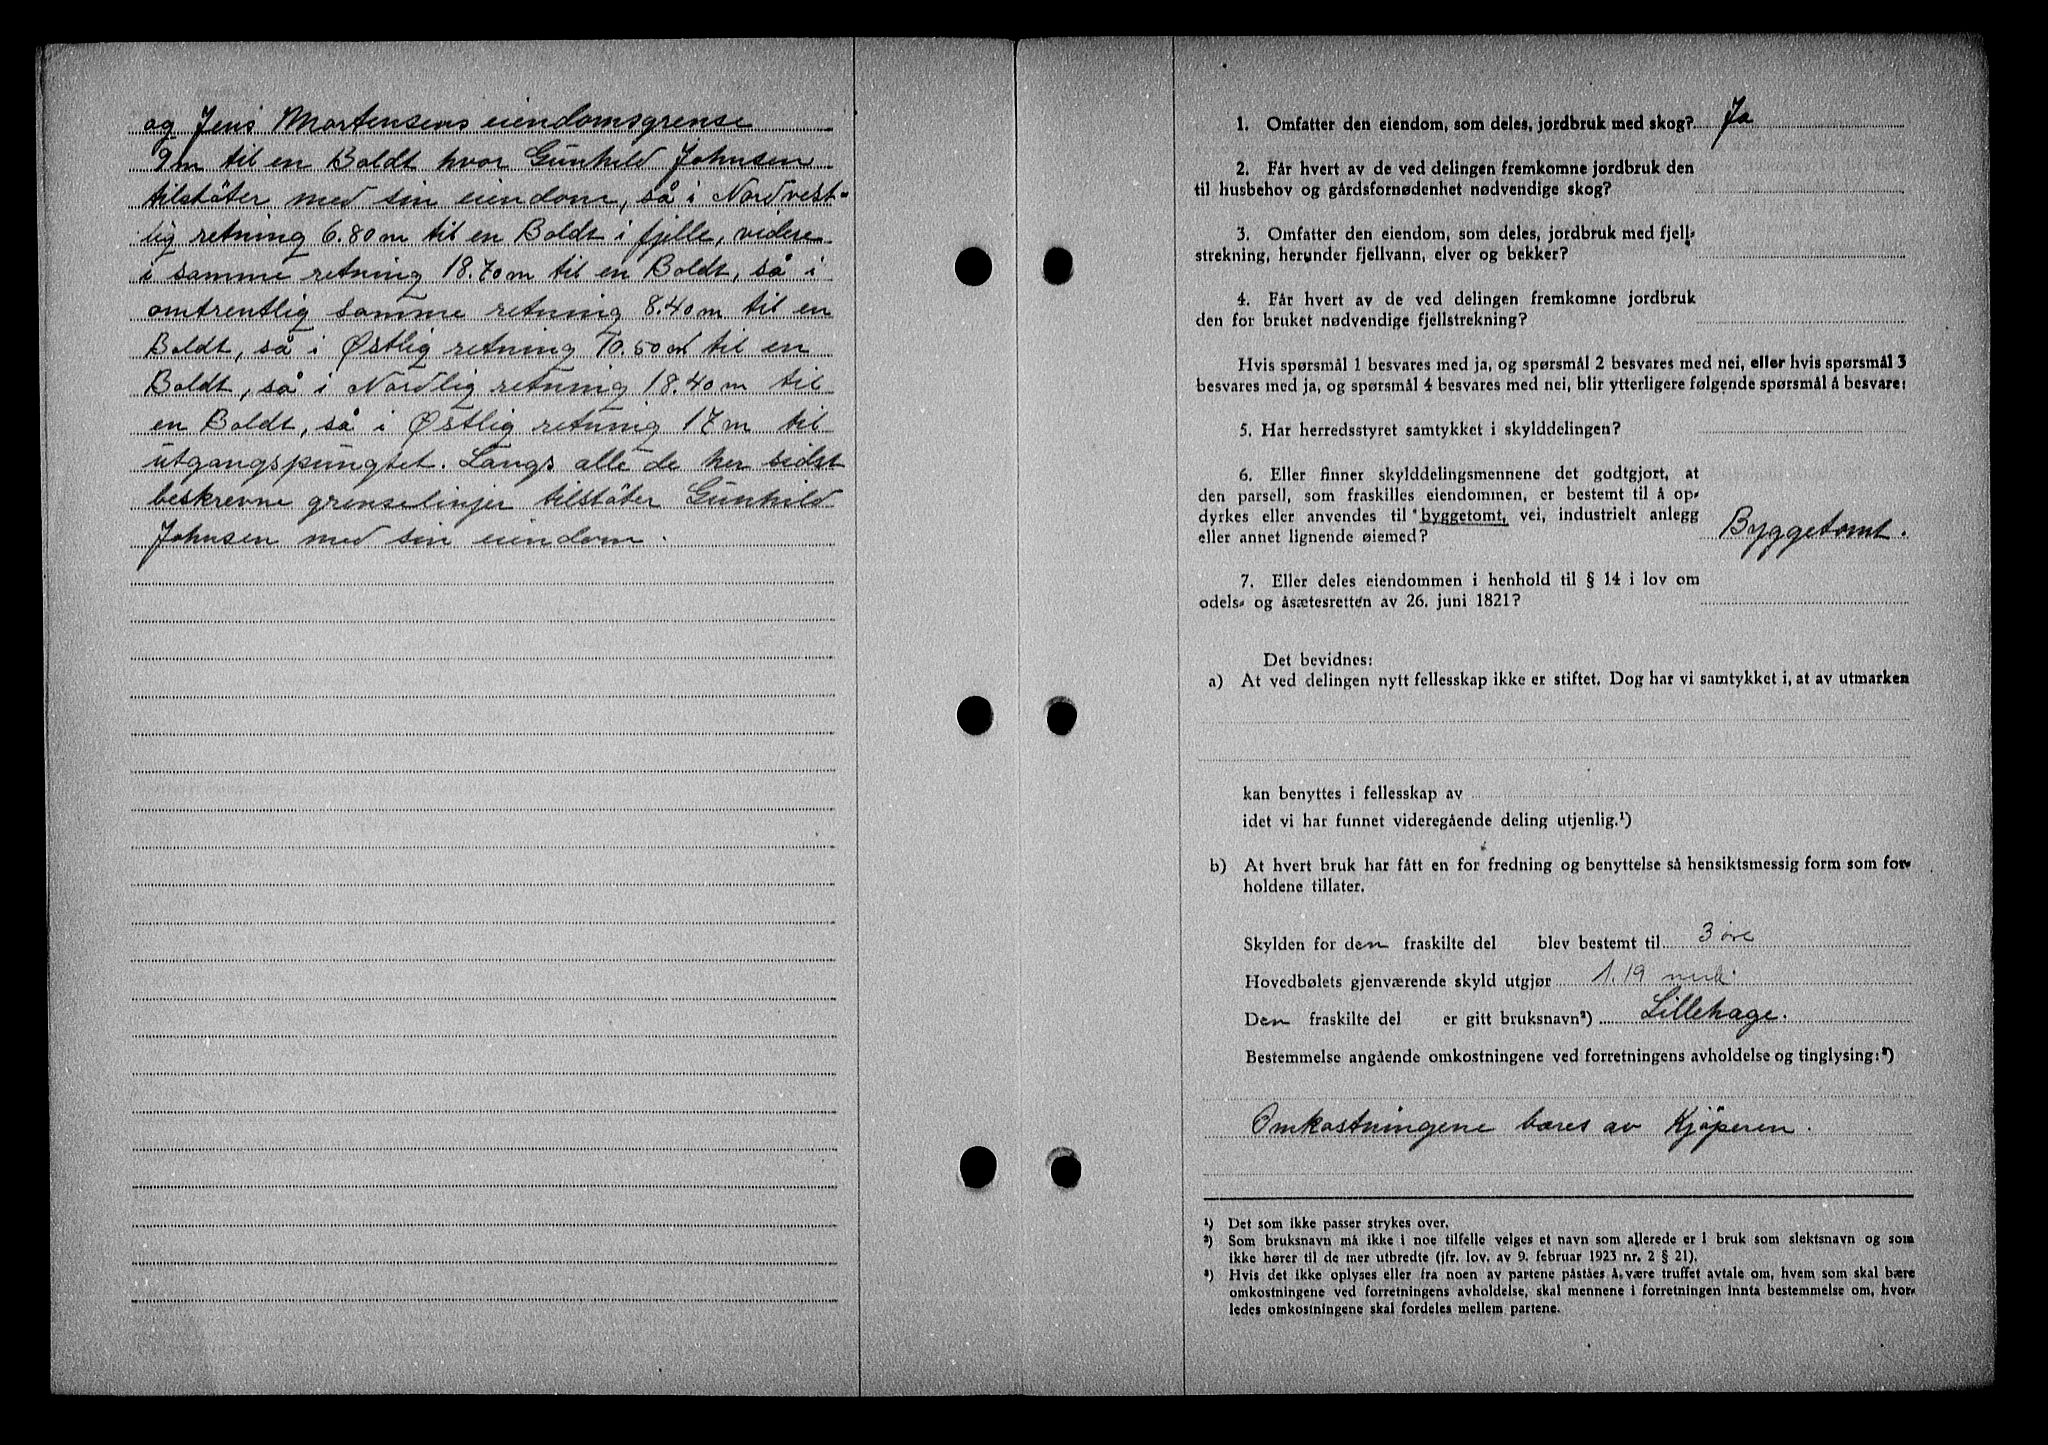 og Jens Mortensens eiendomsgrense
9 m til en Boldt hvor Gunhild Johnsen
tilstöter med sin eiendom, så i Nordvest-
lig retning 6.80 m til en Boldt i fjelle, videre
i samme retning 18.70 m til en Boldt, så i
omtrentlig samme retning 8.40 m til en
Boldt, så i Østlig retning 10.50 m til en
Boldt, så i Nordlig retning 18.40 m til
en Boldt, så i Østlig retning 17 m til
utgangspungtet. Langs alle de her sidst
beskrevne grenselinjer tilstöter Gunhild
Johnsen med sin eiendom.
1. Omfatter den eiendom, som deles, jordbruk med skog? Ja
2. Får hvert av de ved delingen fremkomne jordbruk den
til husbehov og gårdsfornødenhet nødvendige skog?
3. Omfatter den eiendom, som deles, jordbruk med fjell-
strekning, herunder fjellvann, elver og bekker?
4. Får hvert av de ved delingen fremkomne jordbruk
den for bruket nødvendige fjellstrekning?
Hvis spørsmål 1 besvares med ja, og spørsmål 2 besvares med nei, eller hvis spørsmål 3
besvares med ja, og spørsmål 4 besvares med nei, blir ytterligere følgende spørsmål å besvare:
5. Har herredsstyret samtykket i skylddelingen?
6. Eller finner skylddelingsmennene det godtgjort, at
den parsell, som fraskilles eiendommen, er bestemt til å op-
dyrkes eller anvendes til byggetomt, vei, industrielt anlegg
eller annet lignende øiemed? Byggetomt.
7. Eller deles eiendommen i henhold til § 14 i lov om
odels- og åsætesretten av 26. juni 1821?
Det bevidnes:
a) At ved delingen nytt fellesskap ikke er stiftet. Dog har vi samtykket i, at av utmarken
kan benyttes i fellesskap av
idet vi har funnet videregående deling utjenlig.¹)
b) At hvert bruk har fått en for fredning og benyttelse så hensiktsmessig form som for-
holdene tillater.
Skylden for den fraskilte del blev bestemt til 3 øre
Hovedbølets gjenværende skyld utgjør 1.19 mrk.
Den fraskilte del er gitt bruksnavn²) Lillehage.
Bestemmelse angående omkostningene ved forretningens avholdelse og tinglysing:³)
Omkostningene bæres av Kjöperen.
¹) Det som ikke passer strykes over.
²) Som bruksnavn må ikke i noe tilfelle velges et navn som allerede er i bruk som slektsnavn og som
ikke hører til de mer utbredte (jfr. lov. av 9. februar 1923 nr. 2 § 21).
³) Hvis det ikke oplyses eller fra noen av partene påståes å være truffet avtale om, hvem som skal bære
omkostningene ved forretningens avholdelse, skal mennene i forretningen innta bestemmelse om, hvor-
ledes omkostningene skal fordeles mellem partene.